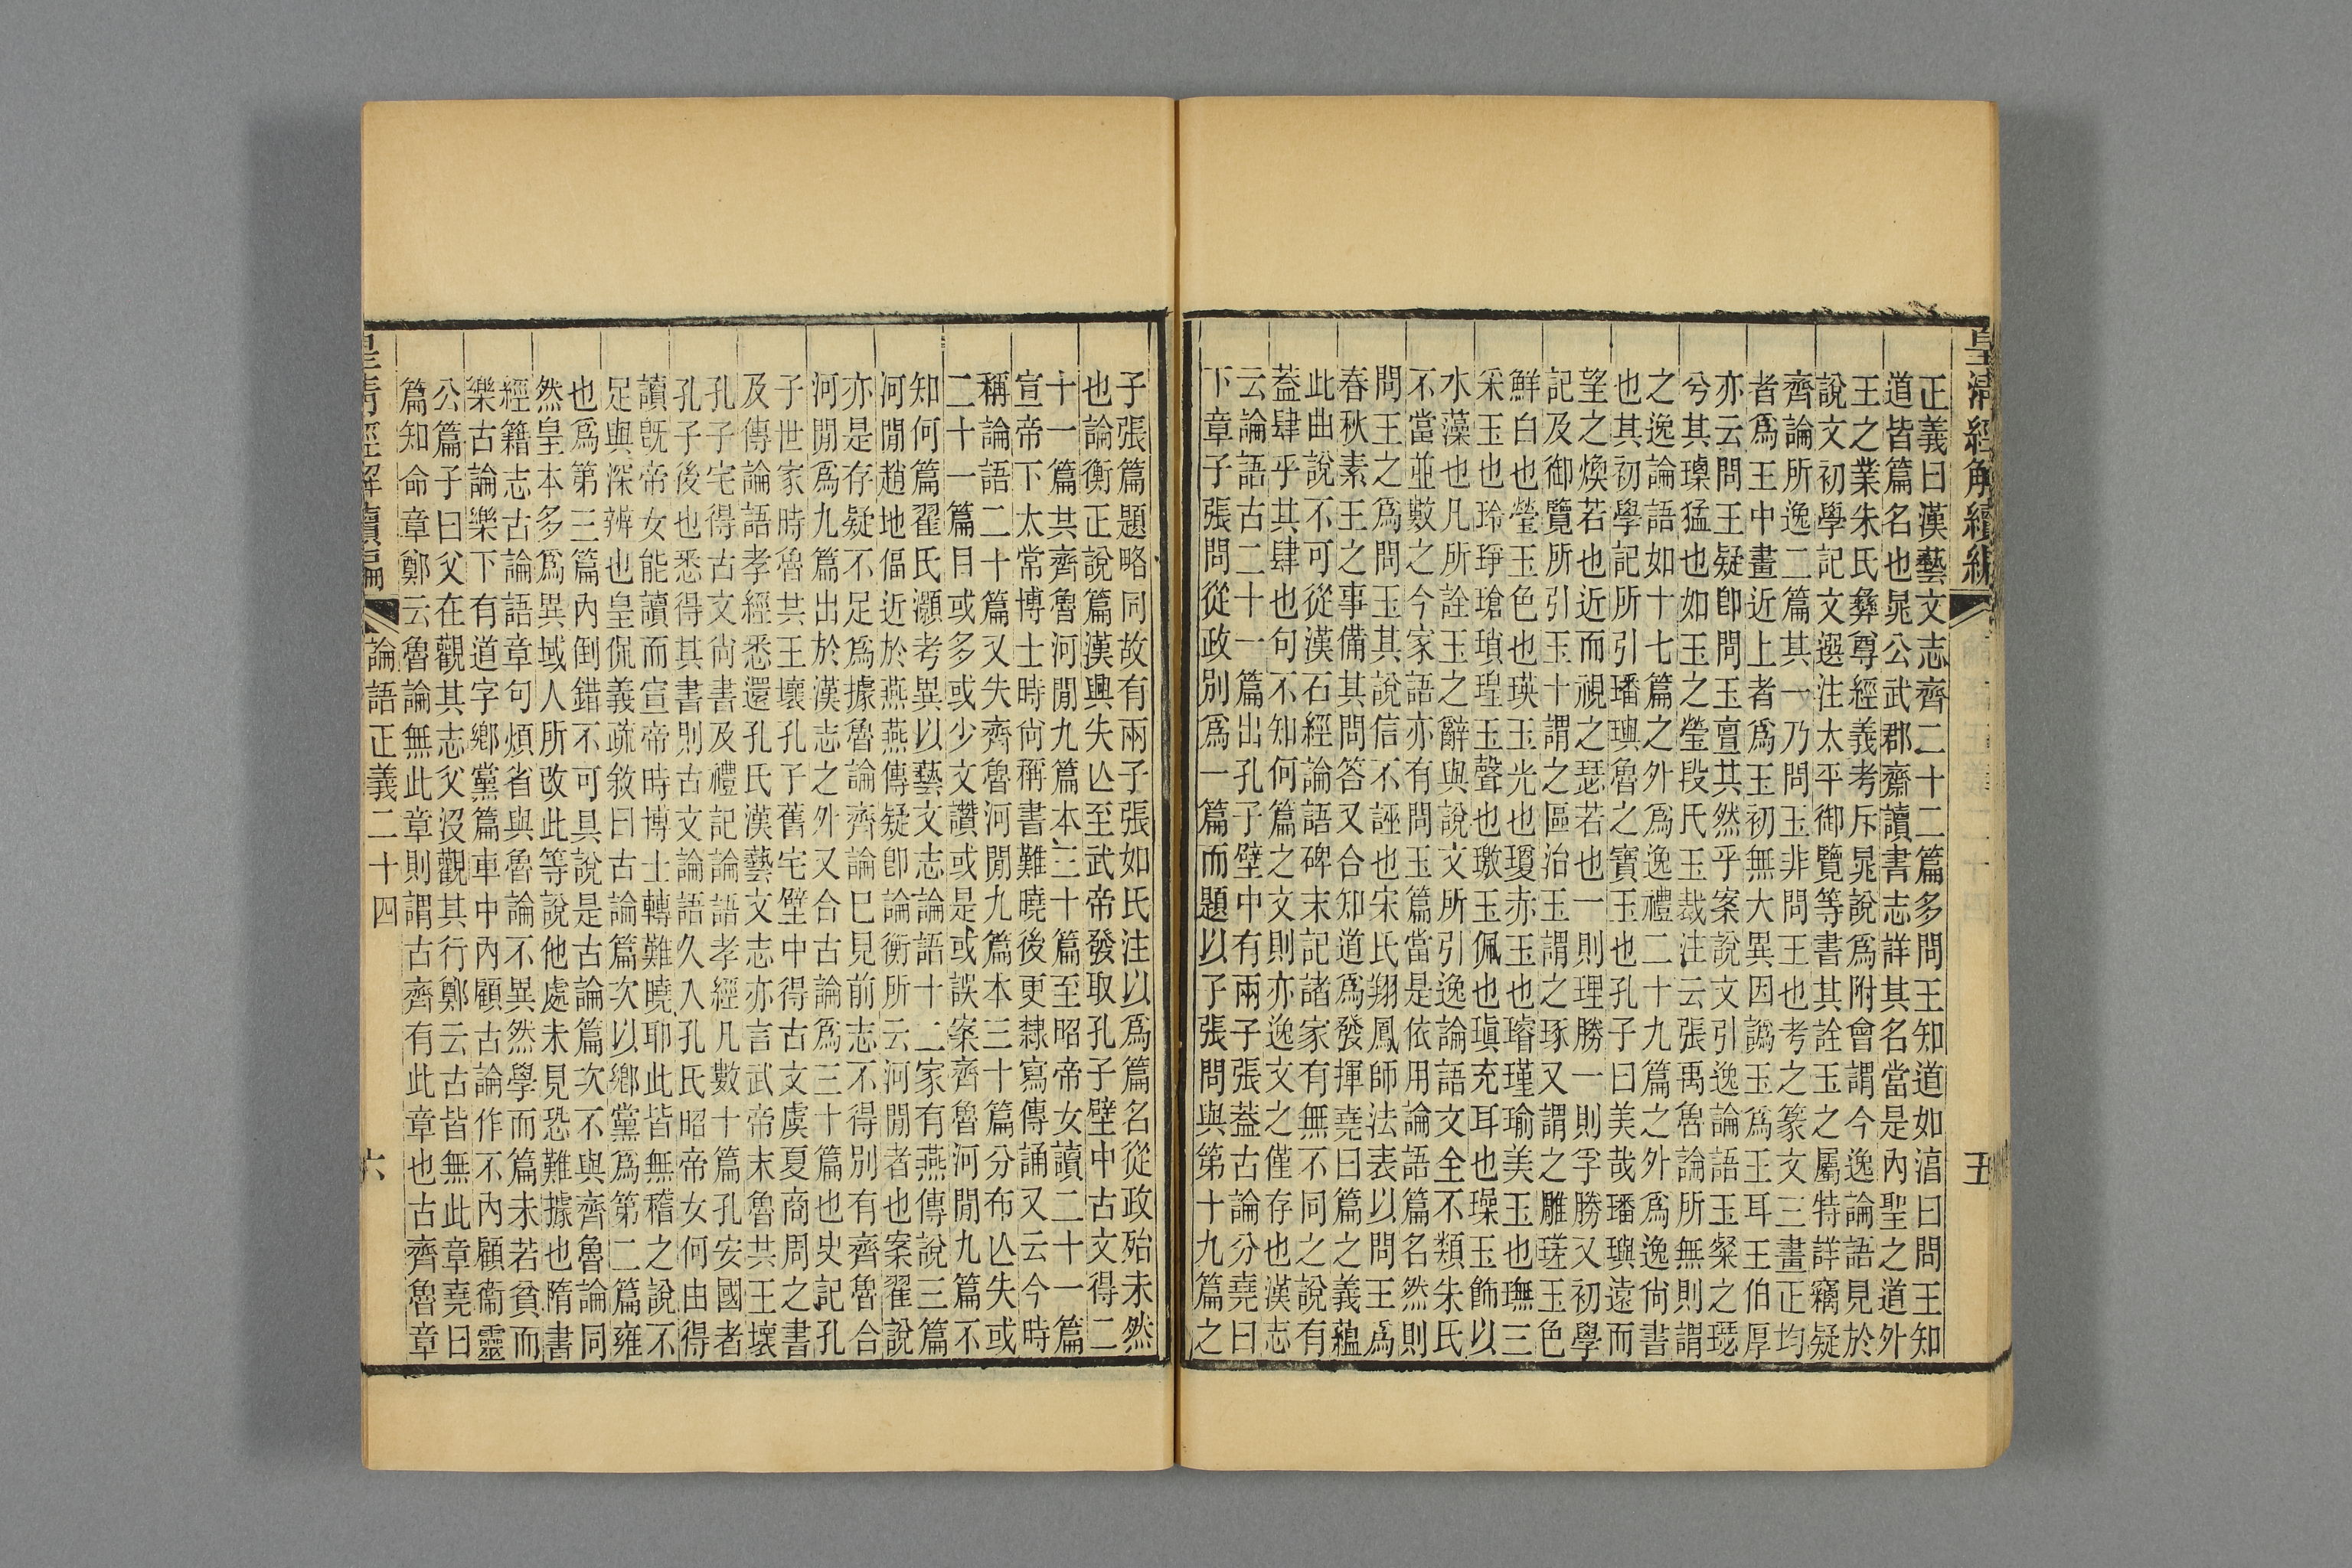 皇清經解續編
五
正義曰漢藝文志齊二十二篇多問王知道如淳曰問王知
道皆篇名也晁公武郡齋讀書志詳其名當是內聖之道外
王之業朱氏彝尊經義考斥晁說爲附會謂今逸論語見於
說文初學記文選注太平御覽等書其詮玉之屬特詳竊疑
齊論所逸二篇其一乃問玉非問王也考之篆文三畫正均
者爲王中畫近上者爲玉初無大異因譌玉爲王耳王伯厚
亦云問王疑卽問玉亶其然乎案說文引逸論語玉粲之璱
兮其瑮猛也如玉之瑩段氏玉裁注云張禹魯論所無則謂
之逸論語如十七篇之外爲逸禮二十九篇之外爲逸尙書
也其初學記所引璠璵魯之寶玉也孔子曰美哉璠璵遠而
望之煥若也近而視之瑟若也一則理勝一則孚勝又初學
記及御覽所引玉十謂之區治玉謂之琢又謂之雕瑳玉色
鮮白也瑩玉色也瑛玉光也瓊赤玉也璿瑾瑜美玉也璑三
采玉也玲琤瑲瑣瑝玉聲也璬玉佩也瑱充耳也璪玉飾以
水藻也凡所詮玉之辭與說文所引逸論語文全不類朱氏
不當並數之今家語亦有問玉篇當是依用論語篇名然則
問王之爲問玉其說信不誣也宋氏翔鳳師法表以問王爲
春秋素王之事備其問答又合知道爲發揮堯曰篇之義蘊
此曲說不可從漢石經論語碑末記諸家有無不同之說有
葢肆乎其肆也句不知何篇之文則亦逸文之僅存也漢志
云論語古二十一篇出孔子壁中有兩子張葢古論分堯曰
下章子張問從政別爲一篇而題以子張問與第十九篇之
子張篇題略同故有兩子張如氏注以爲篇名從政殆未然
也論衡正說篇漢興失亾至武帝發取孔子壁中古文得二
十一篇其齊魯河閒九篇本三十篇至昭帝女讀二十一篇
宣帝下太常博士時尙稱書難曉後更隸寫傳誦又云今時
稱論語二十篇又失齊魯河閒九篇本三十篇分布亾失或
二十一篇目或多或少文讚或是或誤案齊魯河閒九篇不
知何篇翟氏灝考異以藝文志論語十二家有燕傳說三篇
河閒趙地偪近於燕燕傳疑卽論衡所云河閒者也案翟說
亦是存疑不足爲據魯論齊論巳見前志不得別有齊魯合
河閒爲九篇出於漢志之外又合古論爲三十篇也史記孔
子世家時魯共王壞孔子舊宅壁中得古文虞夏商周之書
及傳論語孝經悉還孔氏漢藝文志亦言武帝末魯共王壞
孔子宅得古文尙書及禮記論語孝經凡數十篇孔安國者
孔子後也悉得其書則古文論語久入孔氏昭帝女何由得
讀旣帝女能讀而宣帝時博士轉難曉耶此皆無稽之說不
足與深辨也皇侃義疏敘曰古論篇次以鄉黨爲第二篇雍
也爲第三篇內倒錯不可具說是古論篇次不與齊魯論同
然皇本多爲異域人所改此等說他處未見恐難據也隋書
經籍志古論語章句煩省與魯論不異然學而篇未若貧而
樂古論樂下有道字鄉黨篇車中內顧古論作不內顧衞靈
公篇子曰父在觀其志父沒觀其行鄭云古皆無此章堯曰
篇知命章鄭云魯論無此章則謂古齊有此章也古齊魯章
皇淸經解續編
論語正義二十四
六